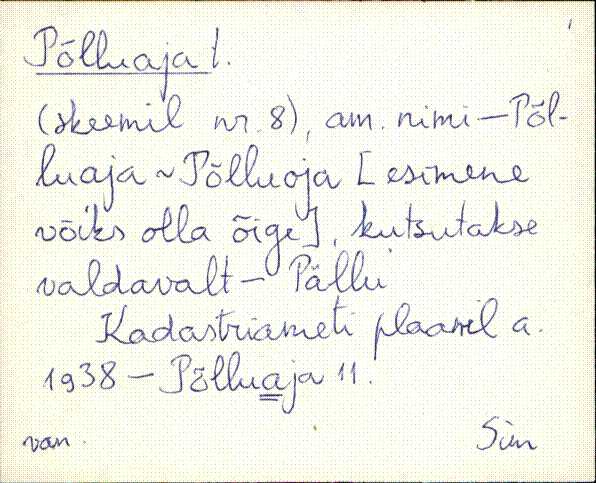 Põlluaja t.
(skeemil nr. 8), am. nimi — Põl-
luaja ~ Põlluoja [esimene
võiks olla õige], kutsutakse
valdavalt — Põllu
Kadastriameti plaanil a.
1938 — Põlluaja 11.
van. Sim